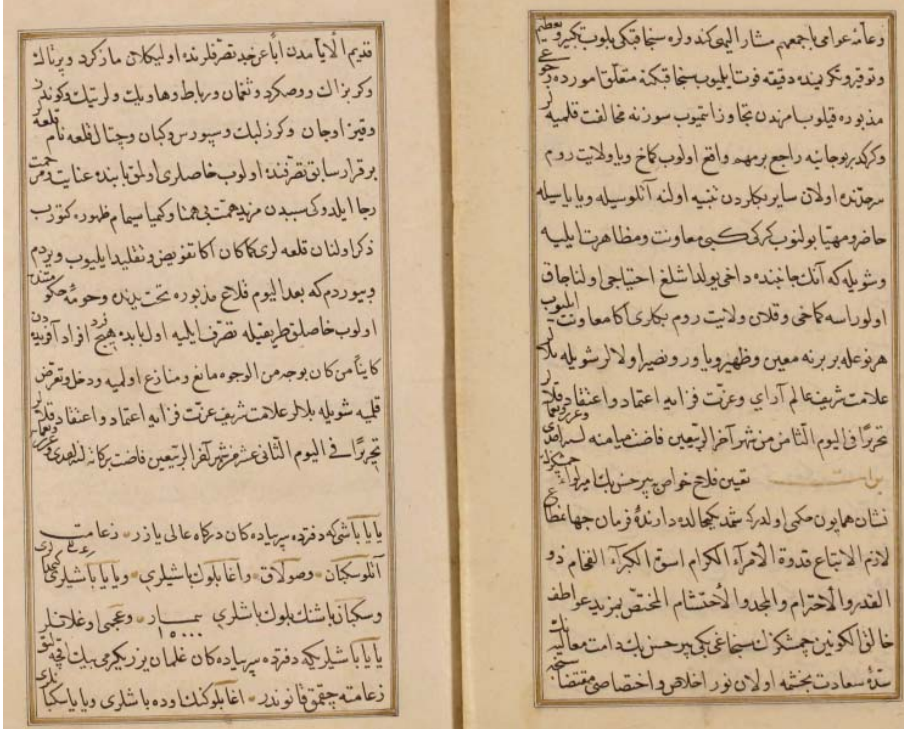 وعامه عوامی باجمعهم مشار الیهی کندولره سنجاقبکی بیلوب تکبیر و تعظیم
وتوقیر و تکریمنده دقیقه فوت ایلمیوب سنجاقبکنه متعلق اموردە
مذبوره قیلوب امرندن تجاوز ایتمیوب سوزنه مخالفت قلمیه
وکرکدر بو جانبه راجع بر مهم واقع اولوب کماخ ویا ولایت روم
سرحدنده اولان سایر بکلردن تنبیه اولنه آنلوسیله ویا یایاسیله
حاضر ومهیا بولنوب کرکی کبی معاونت ومظاهرت ایلیه
وشویله که آنک جانبنده داخی یولداشلغ احتیاجی اولنجاق
اولورسه کماخی وقلان ولایت روم بکلری اکا معاونت ایلیوب
هر نوعله بربرنه معین وظهیر ویاور ونصیر اولالر شویله بیلالر
علامت شریف عالم آرای وعزت فزایه اعتماد واعتقاد قلالر
تحریرًا فی الیوم الثامن من شهر آخر الربیعین فاضت میامنه
تعیین قلاع خواص پیر حسن بک امیر لواء
نشان همایون حکمی اولدرکه شمدیکیحالده دارندهٔ فرمان جهانمطاع
لازم الاتباع قدوة الأمرآء الکرام اسوة الکبرآء الفخام ذو
القدر والاحترام والمجد والاحتشام المختص بمزید عواطف
خالق الکونین چمشکزک سنجاغی بکی پیر حسن بک دامت معالیه
سدهٔ سعادت بخشمه اولان نور اخلاص واختصاصی مقتضاسنجه
قدیم الایامدن ابًا عن جد تصرفلرنده اولیکلان مازکرد وپرتاک
وکربزاک و وصکرد وثقمان ورباط وهاویك ولرتیك وکوندر
وقیز اوجان وکرزلبك وسپورس وکبان وچتال قلعه نام قلعه
برقرار سابق تصرفنده اولوب خاصلری اولمق بابنده عنایت ومرحمت
رجا ایلدوکی سببدن مزید همت بی همتا وکمیا سیمام ظهوره کتورب
ذکر اولنان قلعه لری کماکان اکا تفویض وتقلید ایلیوب ویردم
وبیوردم که بعد الیوم قلاع مذبوره تحت یدنده وحوزهٔ حکومتنده
اولوب خاصلق طریقیله تصرف ایلیه اول بابده هیچ فرد افراد آفریده دن
کاینًا من کان بوجه من الوجوه مانع ومنازع اولمیه ودخل وتعرض
قلمیه شویله بیلالر علامت شریف عزت فزایه اعتماد واعتقاد قلالر
تحریرًا فی الیوم الثانی عشر من شهر آخر الربیعین فاضت برکاته
یایا باشی که دفترده سر پیاده کان درکاه عالی یازر زعامت
آتلو سکبان وصولاق واغا بلوك باشیلری ویایا باشیلری
وسکبان باشنك بلوك باشلری تیمار ١٥٠٠٠ وعجمی اوغلانلر
یایا باشیلری که دفترده سر پیاده کان غلمان یزر یکرمی بیك اقچه لق
زعامته چقمق قانوندر اغا بلوکنك اوده باشلری ویایا سکبانلری